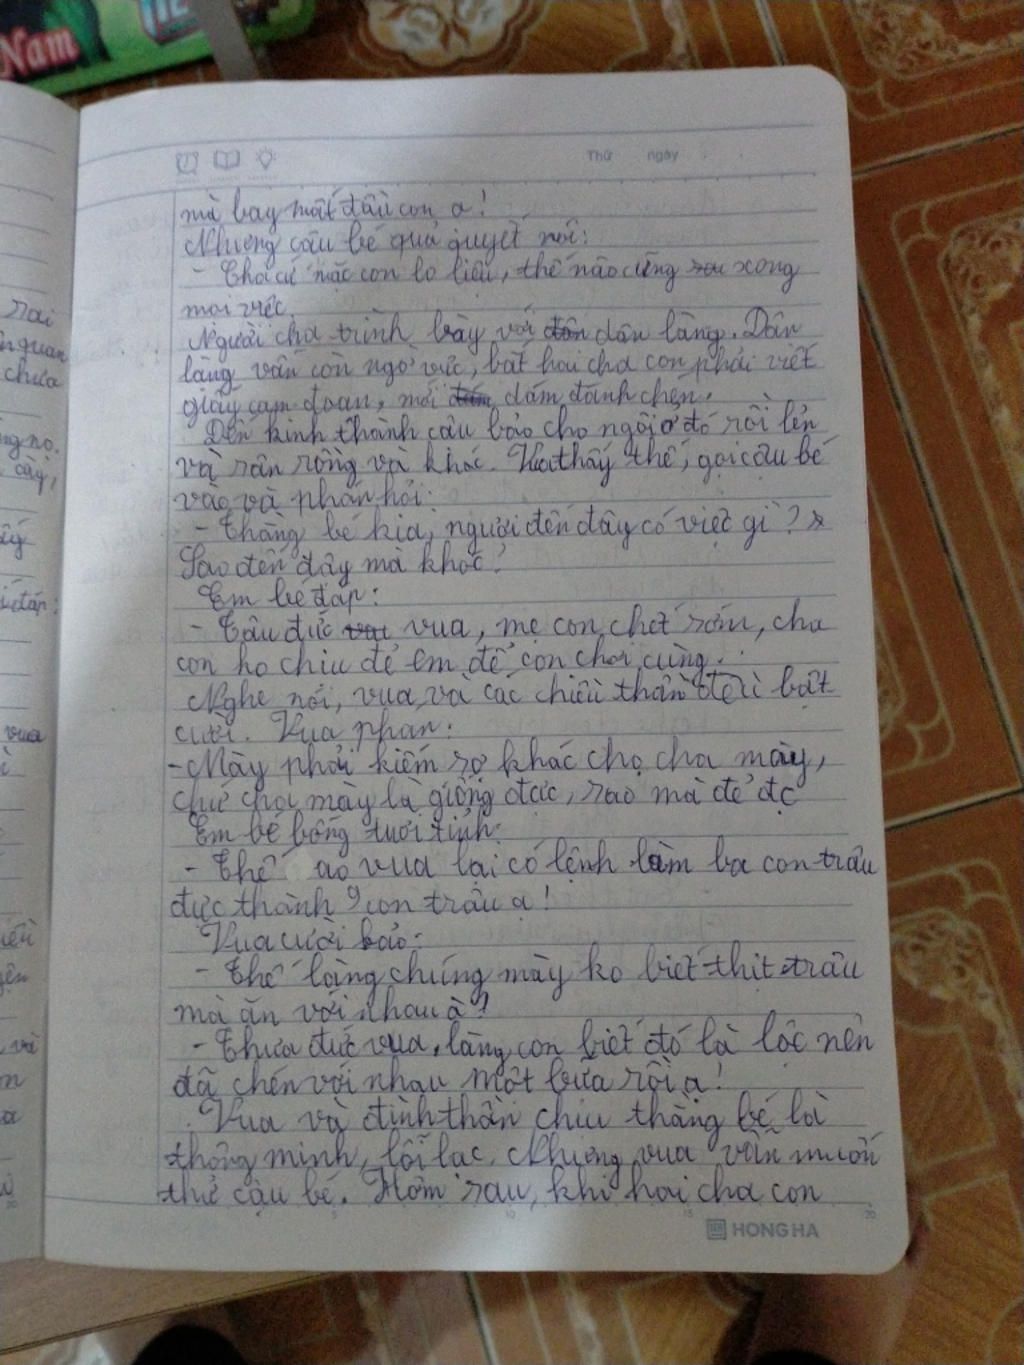 Nam
Thứ ngày
mà bay mất đầu con ạ!
Nhưng cậu bé quả quyết nói:
- Cha cứ mặc con lo liệu, thế nào cũng xong
mọi việc.
Người cha trình bày với dân làng. Dân
làng vẫn còn ngờ vực, bắt hai cha con phải viết
giấy cam đoan, mới dám đánh chén.
Đến kinh thành cậu bảo cha ngồi ở đó rồi lẻn
và sân rồng và khóc. Vua thấy thế, gọi cậu bé
vào và phán hỏi:
- Thằng bé kia, ngươi đến đây có việc gì?
Sao đến đây mà khóc?
Em bé đáp:
- Tâu đức vua, mẹ con chết sớm, cha
con ko chịu đẻ em để con chơi cùng.
Nghe nói, vua và các chiều thần đều bật
cười. Vua phán:
- Mày phải kiếm vợ khác cho cha mày,
chứ cha mày là giống đực, sao mà đẻ đc
Em bé bỗng tươi tỉnh:
- Thế ao vua lại có lệnh làm ba con trâu
đực thành 9 con trâu ạ!
Vua cười bảo:
- Thế làng chúng mày ko biết thịt trâu
mà ăn với nhau à?
- Thưa đức vua, làng con biết đó là lộc nên
đã chén với nhau một bữa rồi ạ!
Vua và đình thần chịu thằng bé là
thông minh, lỗi lạc. Nhưng vua vẫn muốn
thử cậu bé. Hôm sau, khi hai cha con
HONG HA
rai
quan
chưa
cày,
đáp:
vua
và